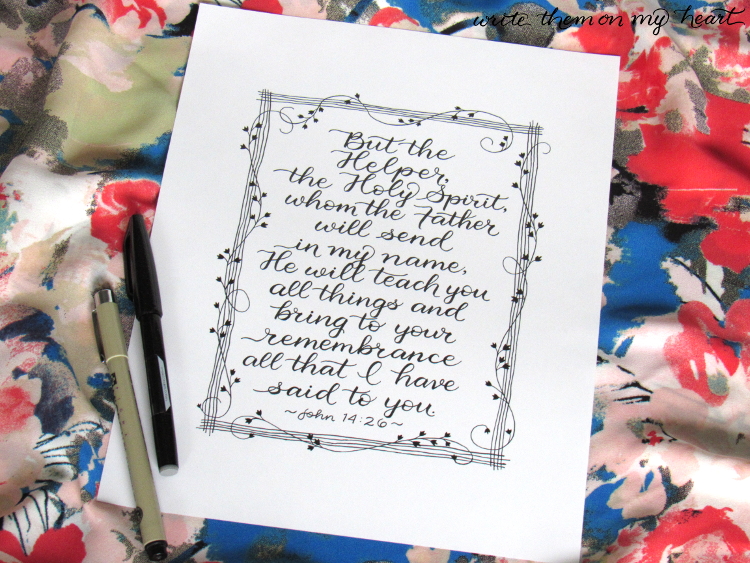 write them on my heart
But the
Helper,
the Holy Spirit,
whom the Father
will send
in my name,
He will teach you
all things and
bring to your
remembrance
all that I have
said to you.
~John 14:26~